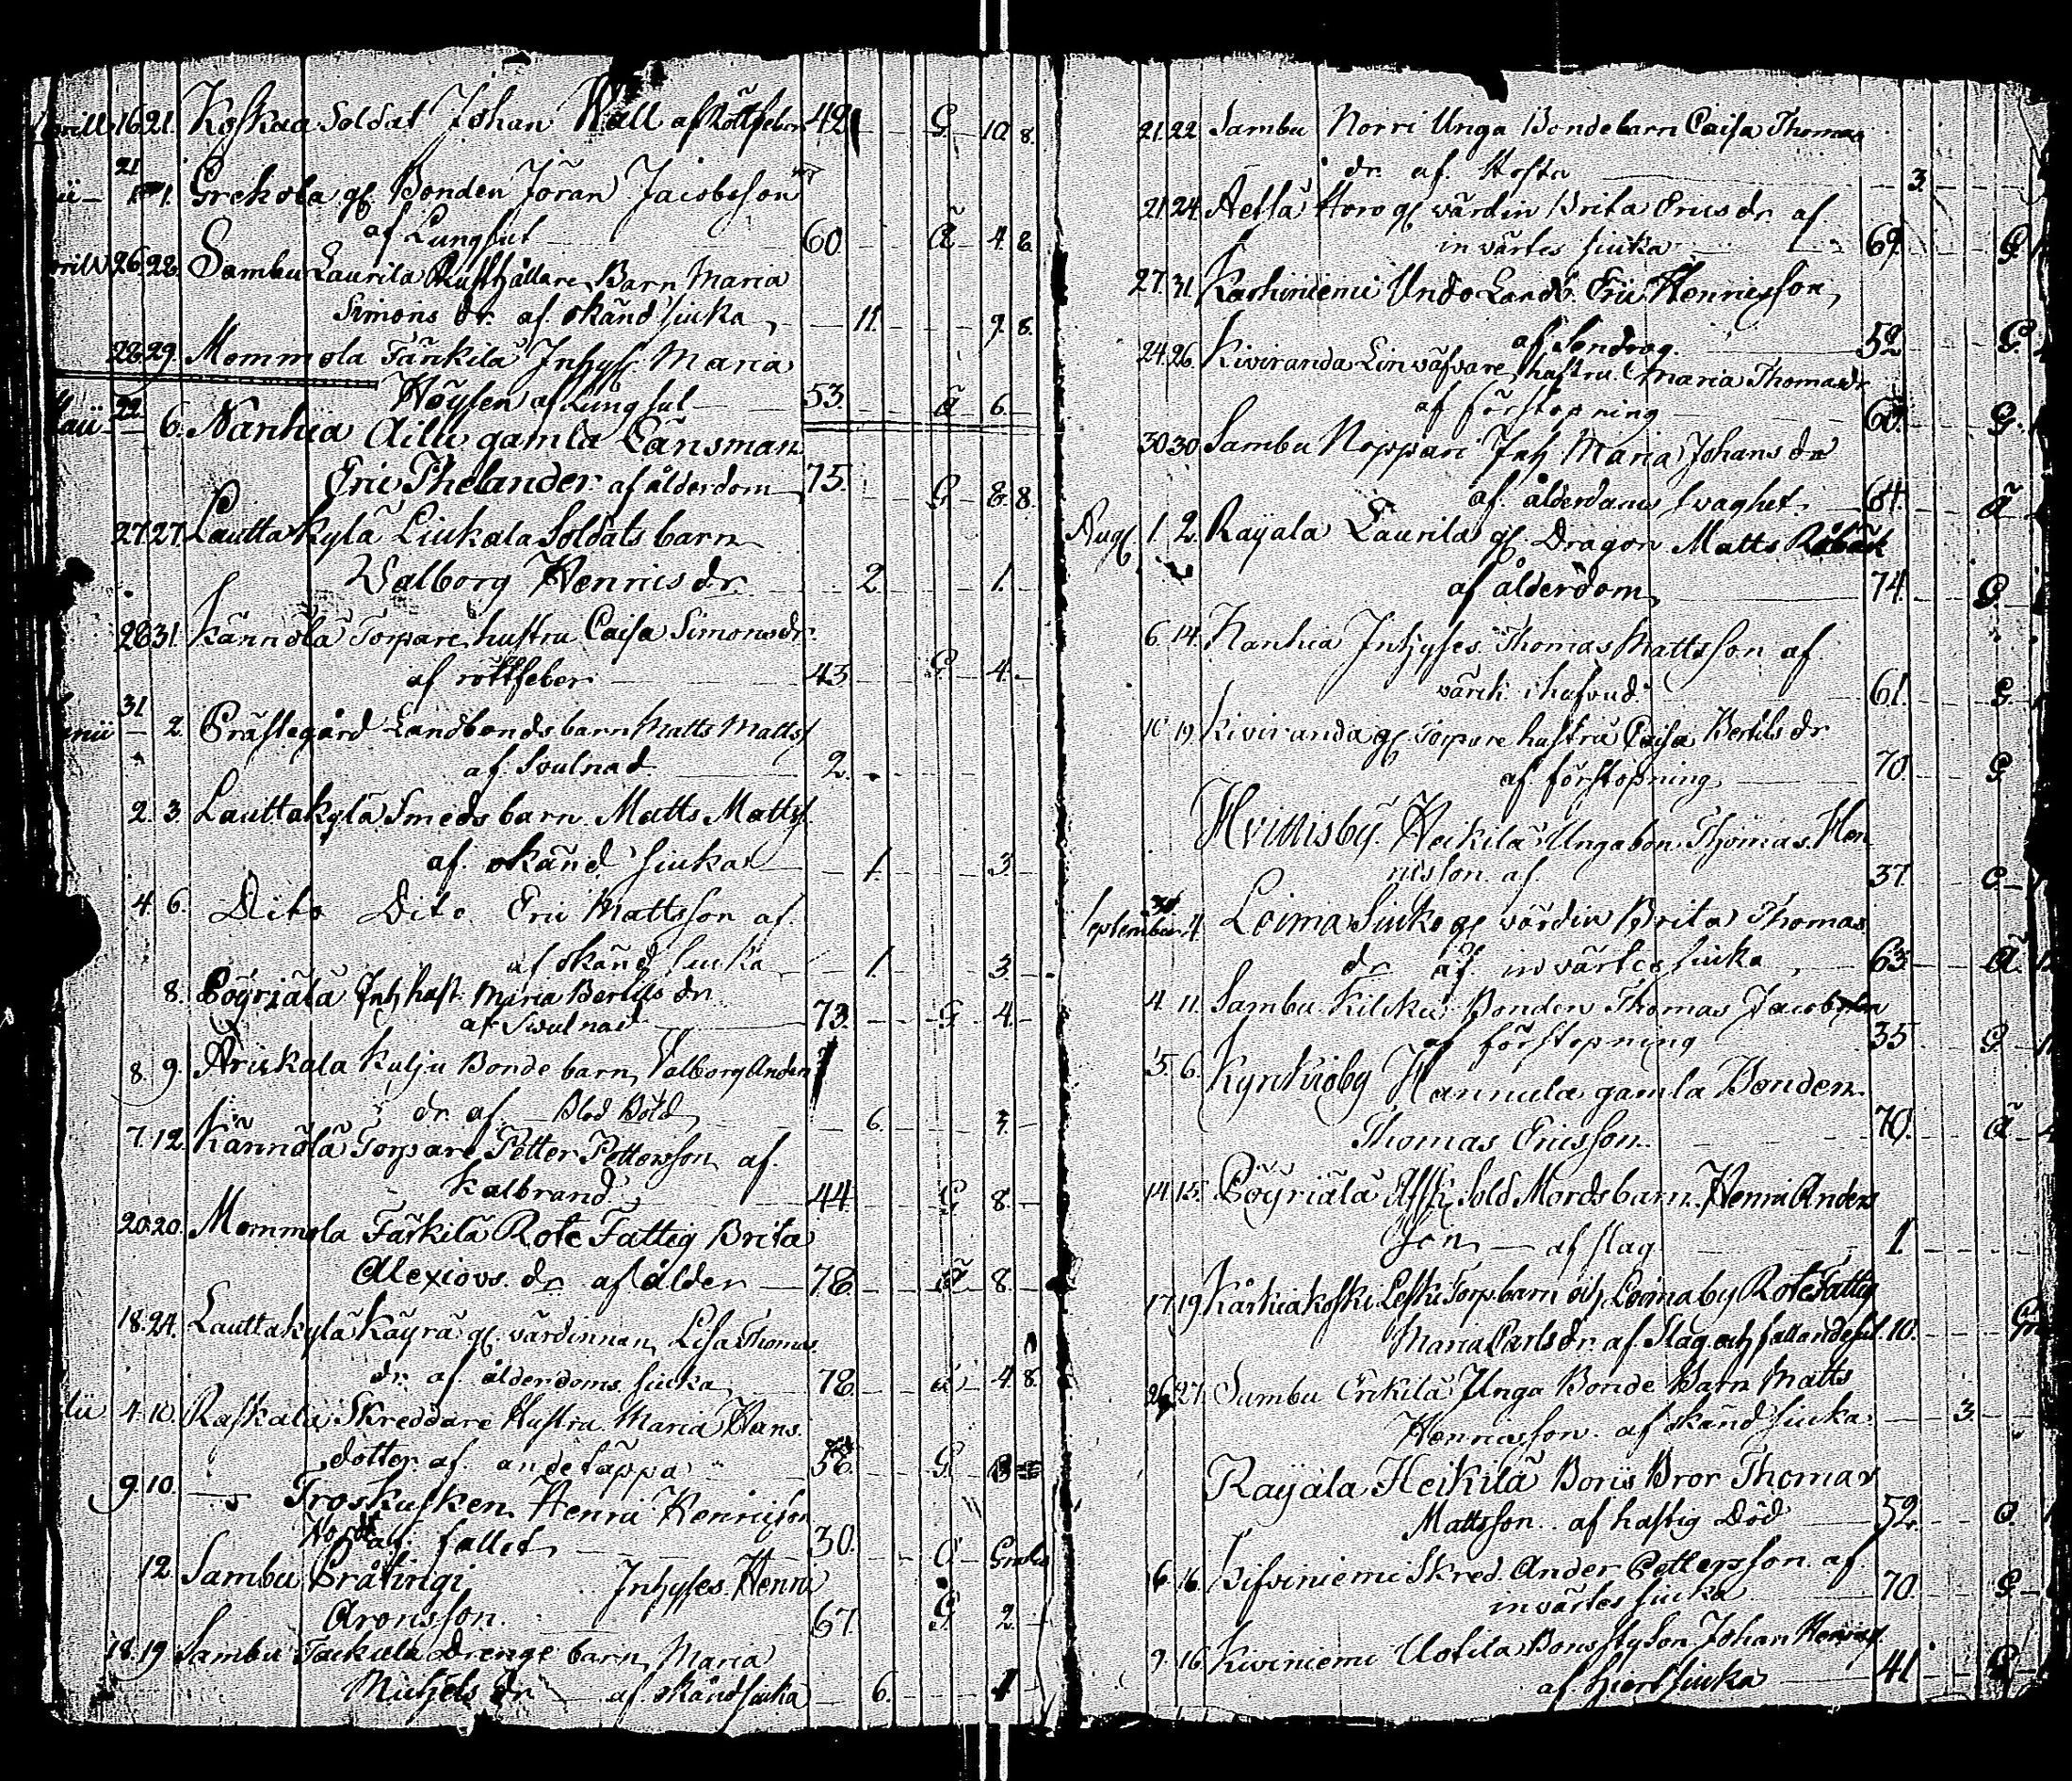 Aprill 16 21. Koskaa Soldat Johan Wall af Röttfeber 42 G 10 8.
21
1. Grekola gl Bonden Jöran Jacobsson
af Lungsut 60 Ä 4. 8.
Aprill 26. 28. Sambu Laurila Rusthållare Barn Maria
Simons dr. af okänd siuka 11. 9. 8.
28. 29. Mommola Tärikilä Inhyses Maria
af Lungsut 53. Ä 6.
22 6. Nanhia Ailu gamla Länsman
Eric Thelander af ålderdom 75. G 8. 8.
27. 27. Lauttakylä Liukala Soldats barn
Walborg Henrics dr 2. 1.
28 31. Kännölä Torpare hustru Caisa Simonsdr
af röttfeber 43 G 4.
31
2. Prästegård Landbonds barn Matts Matts
af Svulnad 2.
2. 3. Lauttakylä Smeds barn Matts Matts
af okänd siuka 1. 3.
4. 6. Dito Dito Eric Mattsson af
af okänd siuka 1. 3.
8. Pöyriälä Inh hust Maria Bertils dr
af Swulnad 73. G 4.
8. 9. Kulju Bonde barn Valborg Anders
dr. af Blod Död 6. 3.
7. 12. Kännölä Torpare Petter Pettersson af
Kalbrand 44 G 8.
20. 20. Mommola Tärkilä Rote Fattig Brita
Alexiovs. dr af ålder 78 Ä 8.
18. 24. Lauttakylä Käyrä gl. värdinnan Lisa Thomas
dr af ålderdoms siuka 78 ä 4. 8
4. 10. Raskala Skreddare Hustru Maria Hans
dotter af andetäppa 58 G
9. 10. Henric Henricsson
af fallet 30.
12 Sambu Prätingi Inhyses Henric
Aronsson. 67 G 2.
18. 19 Sambu Drenge barn Maria
Michels dr af okänd siuka 6. 1
21. 22 Sambu Norri Unga Bonde barn Caisa Thomas
dr. af. Hosta 3.
21. 24. Aetsä gl värdin Brita Erics dr af
invärtes siuka 69. G
27. 31. Karhiniemi Undo Landb. Eric Henricsson,
af Sendrag 52 G
24. 26. Kiviranda Linväfvare hustru Maria Thomasdr
af förstopning 60. G.
30 30 Sambu Noppari Inh Maria Johans dr
af ålderdoms svaghet 64 Ä
Aug. 1 2 Rayala Laurila gl Dragon Matts
af ålderdom 74. G
6. 14. Nanhia Inhyses Thomas Mattsson af
värck i hufvud 61. G
19 Kiviranda gl Torpare hustru Caisa Bertils dr
af förstopning 70. G
Hvittisby Heikilä Unga bon Thomas Hen
ricsson af 37
September 4. Loima gl värdin Brita Thomas
dr af invärtes siuka 63. Ä
4. 11. Sambu Kilcku Bonden Thomas Jacobsson
af förstopning 35 G
5. 6. Hannula gamla Bonden
Thomas Ericsson 70. Ä
14. 15. Pöyriälä Sold Mords barn Henric Anders
son af slag 1.
17. 19 Torp barn och Loimaby Rote Fattig
Maria Carls dr. af Slag och fallandesot. 10.
26 27 Sambu Erikilä Unga Bonde Barn Matts
Henricsson af okänd siuka 3.
Rayala Heikilä Bror Thomas
Mattsson af hastig Död 52.
6. 16. Kifviniemi Skred. Ander Pettersson af
invärtes siuka 70. G
9. 16 Kiviniemi Uotila Johan
af 41